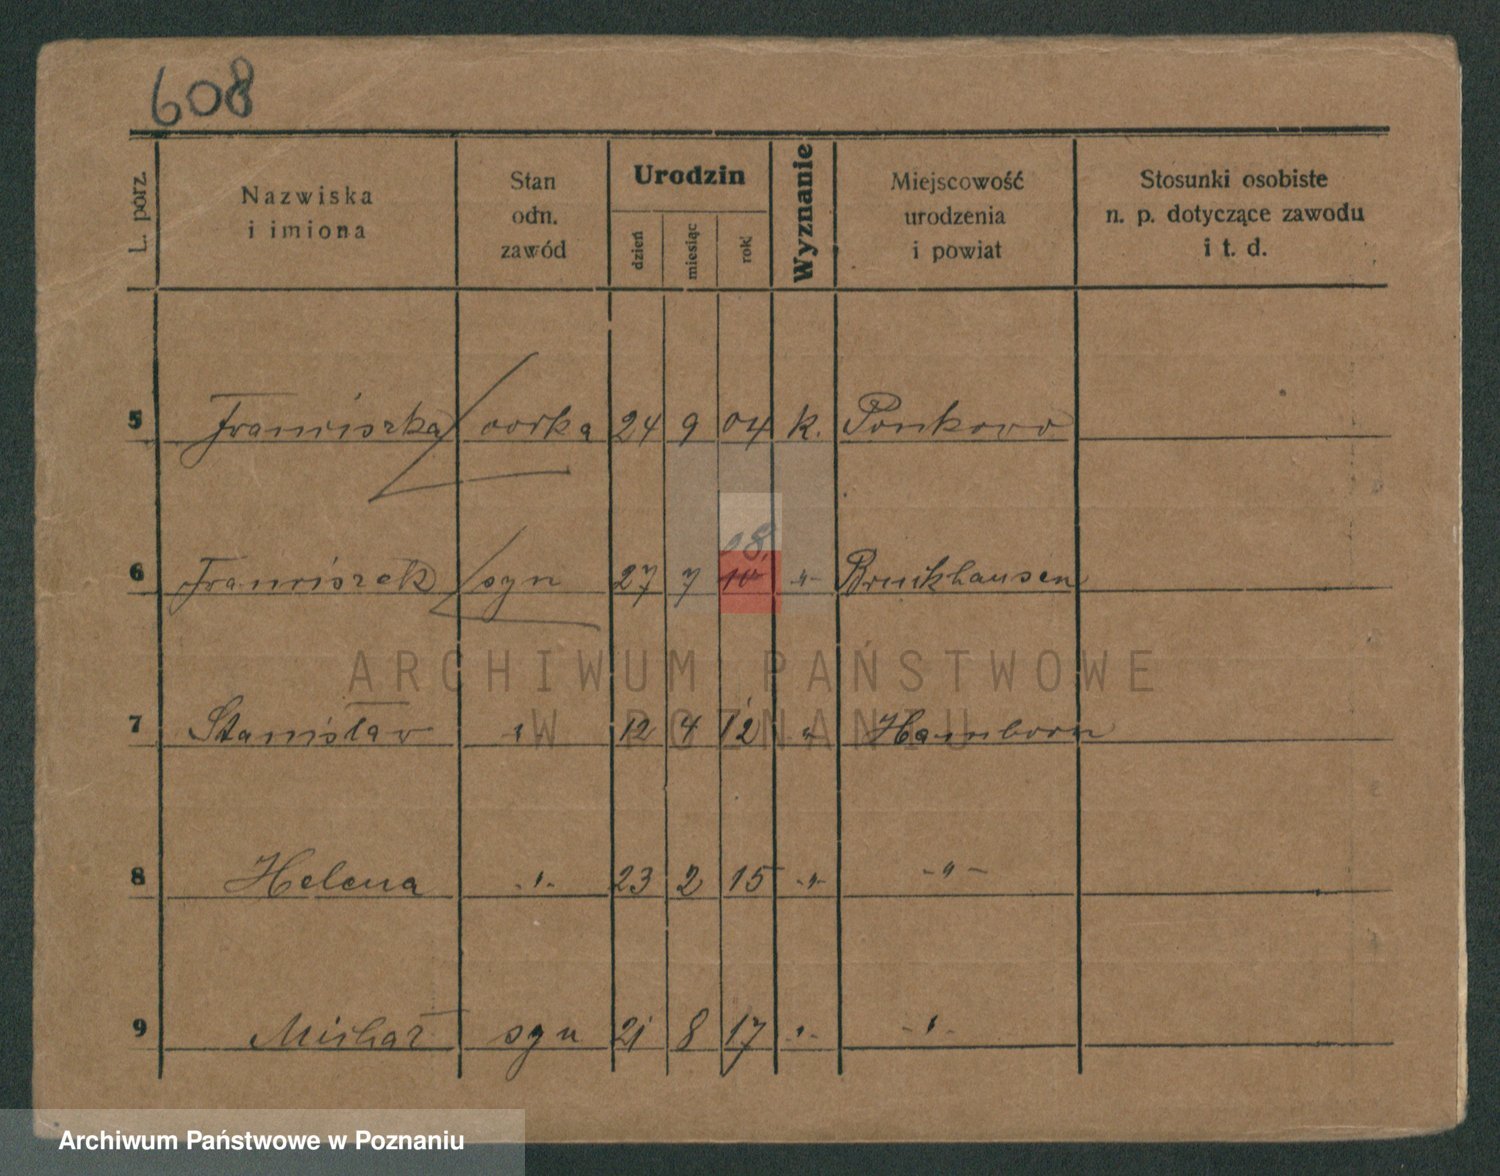 608
L. porz.
Nazwiska
i imiona
Stan
odn.
zawód
Urodzin
dzień
miesiąc
rok
Wyznanie
Miejscowość
urodzenia
i powiat
Stosunki osobiste
n. p. dotyczące zawodu
i t. d.
5 Franciszka corka 24 9 04 k. Ponkowo
08.
6 Franciszek syn 27 7 10 -"- Bruckhausen
7 Stanisław " 12 4 12 " Hamborn
8 Helena -"- 23 2 15 -"- -"-
9 Michał syn 21 8 17 -"- -"-
ARCHIWUM PAŃSTWOWE
W POZNANIU
Archiwum Państwowe w Poznaniu